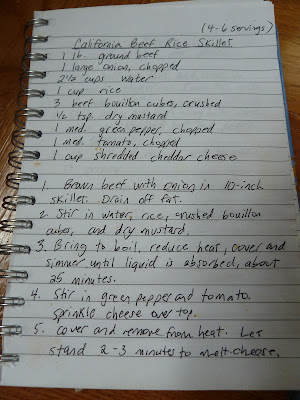 (4-6 servings)
California Beef Rice Skillet
1 lb. ground beef
1 large onion, chopped
2 1/2 cups water
1 cup rice
3 beef bouillon cubes, crushed
1/2 tsp. dry mustard
1 med. green pepper, chopped
1 med. tomato, chopped
1 cup shredded cheddar cheese
1. Brown beef with onion in 10-inch
skillet. Drain off fat.
2. Stir in water, rice, crushed bouillon
cubes, and dry mustard.
3. Bring to boil, reduce heat, cover and
simmer until liquid is absorbed, about
25 minutes.
4. Stir in green pepper and tomato.
sprinkle cheese over top.
5. Cover and remove from heat. Let
stand 2-3 minutes to melt cheese.